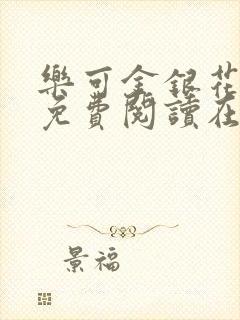 樂可金銀花
免費閱讀在
景福